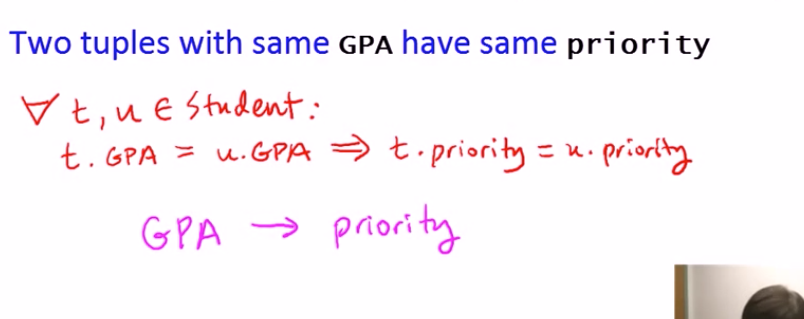 Two tuples with same GPA have same priority
∀ t, u ∈ Student:
t. GPA = u. GPA ⇒ t. priority = u. priority
GPA → priority